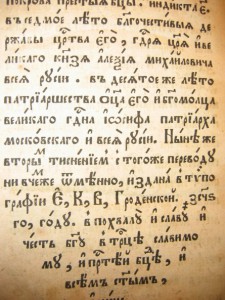 покрова прест҃ыѧ бц҃ы. индикта є҃.
въ седмое лѣто бл҃гочестивыѧ дер
жавы црⷭ҇тва є҆гѡ̀, гдⷭ҇рѧ цр҃ѧ и҆ ве
ликаго кн҃зѧ а҆леѯі́ѧ миха́йловича
всеѧ̀ русі́и. въ десѧ́тое же лѣто
патрїа́ршества ѻ҆ц҃а̀ є҆гѡ̀ и҆ бг҃омо́лца
вели́каго гдⷭ҇на і҆ѡ́сифа патрїа́рха
моско́вскаго и҆ всеѧ̀ русі́и. Ны́нѣ же
вторы́мъ тисне́нїемъ с того́же перево́ду
ничемже ѿмѣ́нно, и҆здана̀ в тѵпо
гра́фїи Є҆, К, В, Гро́денской.
го, го́ду. в похвалꙋ̀ и҆ сла́вꙋ и҆
че́сть бг҃ꙋ в трⷪ҇цѣ сла́вимо
мꙋ, и҆ прⷭ҇тѣ́й бц҃ѣ, и҆
всѣ́мъ ст҃ы́мъ,